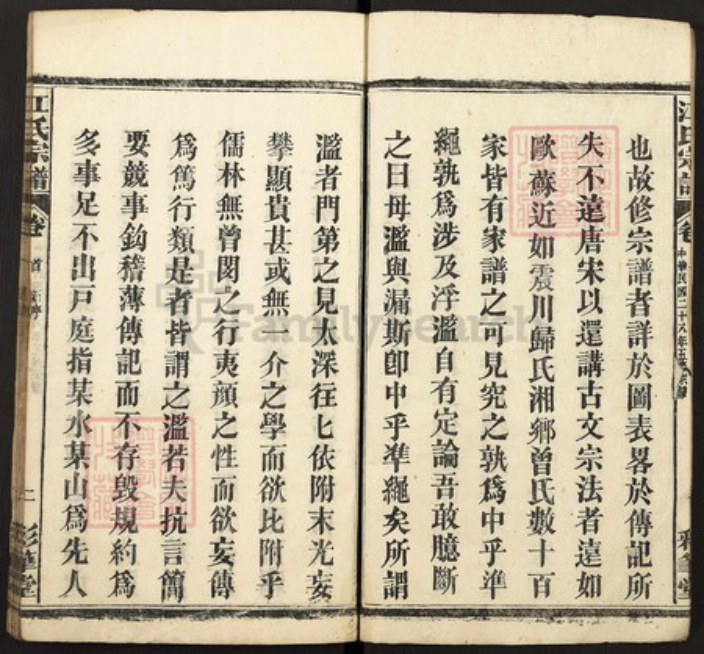 江氏宗譜
卷
中華民國二十六年五
彩筆堂
也故修宗譜者詳於圖表畧於傳記所
失不遠唐宋以還講古文宗法者遠如
歐蘇近如震川歸氏湘鄉曾氏數十百
家皆有家譜之可見究之孰爲中乎準
繩孰爲涉及浮濫自有定論吾敢臆斷
之曰毋濫與漏斯卽中乎準繩矣所謂
濫者門第之見太深往匕依附末光妄
攀顯貴甚或無一介之學而欲比附乎
儒林無曾閔之行夷顔之性而欲妄傳
爲篤行類是者皆謂之濫若夫抗言簡
要競事鈎稽薄傳記而不存毀規約爲
多事足不出戸庭指某水某山爲先人
江氏宗譜
卷
首
二
彩筆堂
FamilySearch